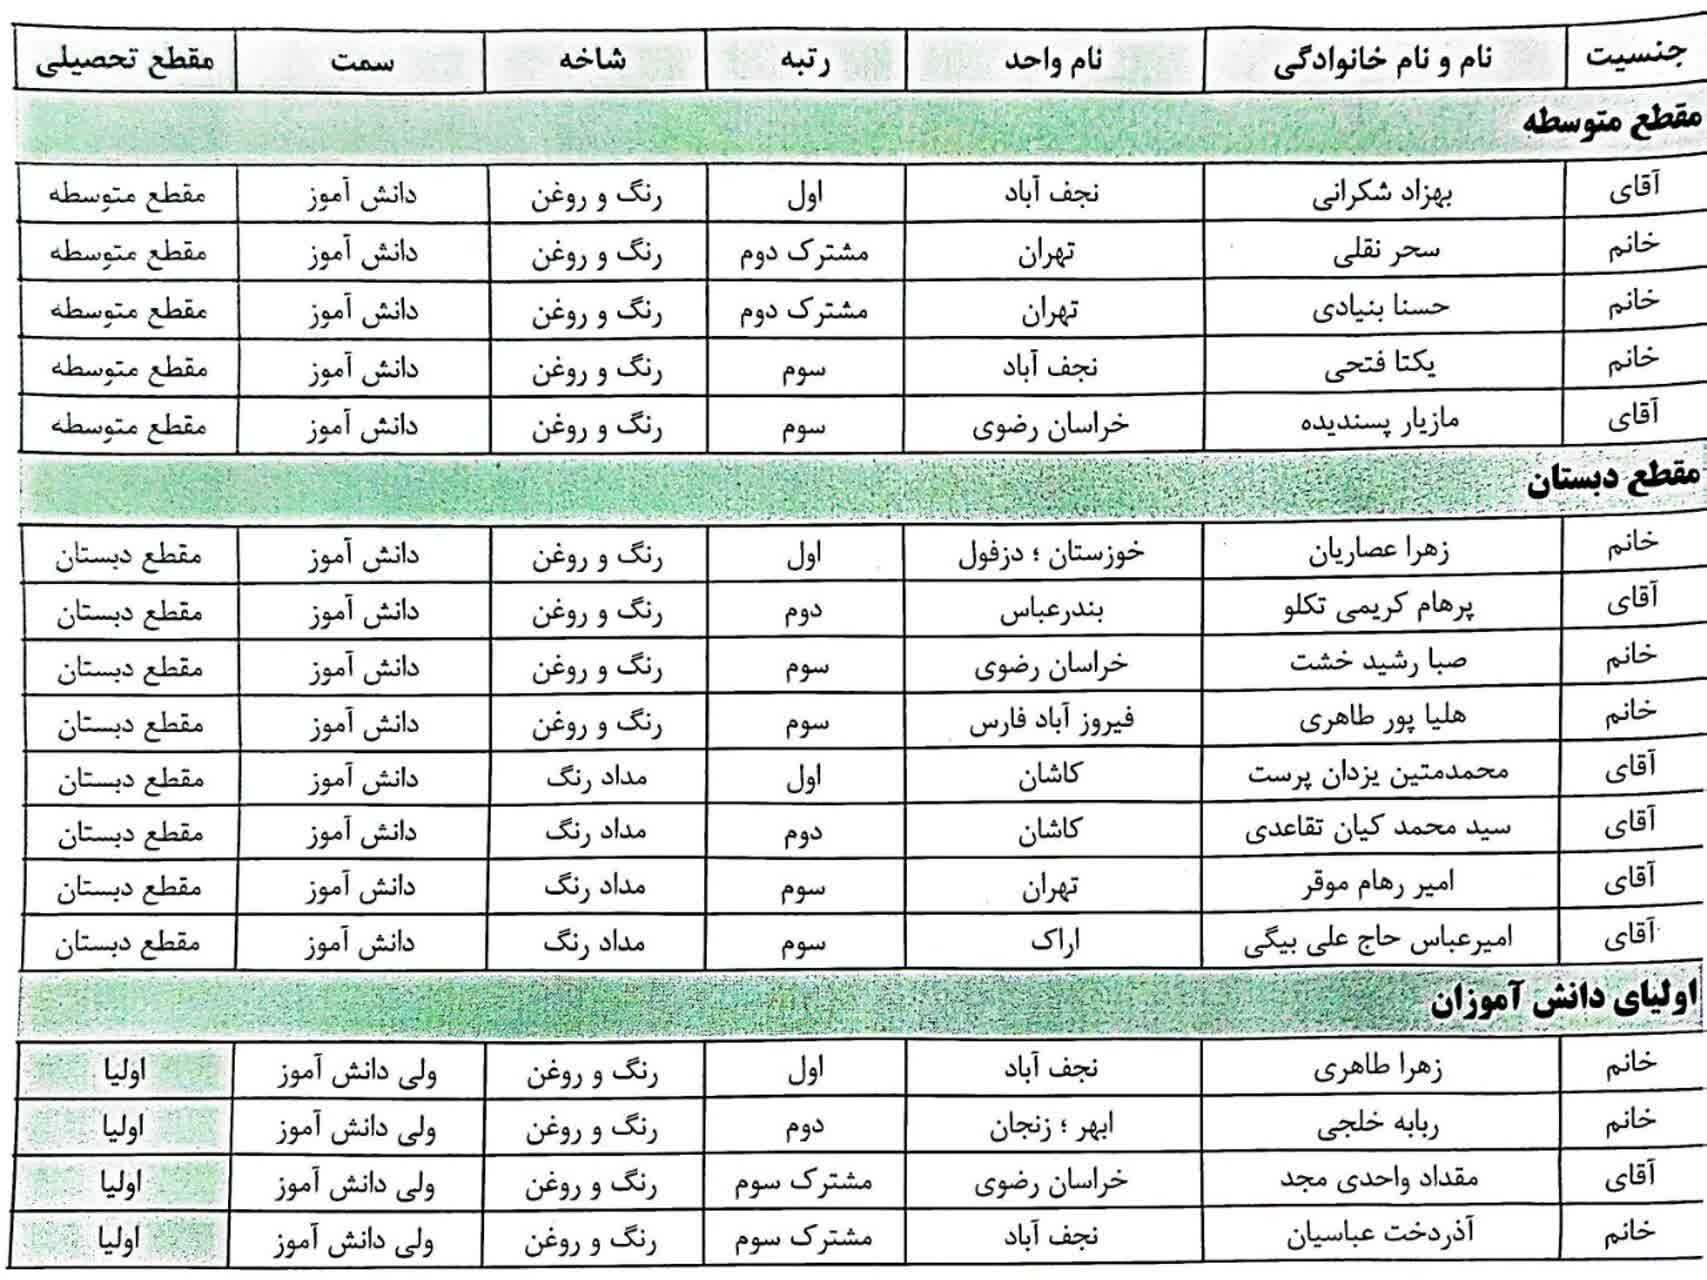 جنسیت نام و نام خانوادگی نام واحد رتبه شاخه سمت مقطع تحصیلی
مقطع متوسطه
آقای بهزاد شکرانی نجف آباد اول رنگ و روغن دانش آموز مقطع متوسطه
خانم سحر نقلی تهران مشترک دوم رنگ و روغن دانش آموز مقطع متوسطه
خانم حسنا بنیادی تهران مشترک دوم رنگ و روغن دانش آموز مقطع متوسطه
خانم یکتا فتحی نجف آباد سوم رنگ و روغن دانش آموز مقطع متوسطه
آقای مازیار پسندیده خراسان رضوی سوم رنگ و روغن دانش آموز مقطع متوسطه
مقطع دبستان
خانم زهرا عصاریان خوزستان ؛ دزفول اول رنگ و روغن دانش آموز مقطع دبستان
آقای پرهام کریمی تکلو بندرعباس دوم رنگ و روغن دانش آموز مقطع دبستان
خانم صبا رشید خشت خراسان رضوی سوم رنگ و روغن دانش آموز مقطع دبستان
خانم هلیا پور طاهری فیروز آباد فارس سوم رنگ و روغن دانش آموز مقطع دبستان
آقای محمدمتین یزدان پرست کاشان اول مداد رنگ دانش آموز مقطع دبستان
آقای سید محمد کیان تقاعدی کاشان دوم مداد رنگ دانش آموز مقطع دبستان
آقای امیر رهام موقر تهران سوم مداد رنگ دانش آموز مقطع دبستان
آقای امیرعباس حاج علی بیگی اراک سوم مداد رنگ دانش آموز مقطع دبستان
اولیای دانش آموزان
خانم زهرا طاهری نجف آباد اول رنگ و روغن ولی دانش آموز اولیا
خانم ربابه خلجی ابهر ؛ زنجان دوم رنگ و روغن ولی دانش آموز اولیا
آقای مقداد واحدی مجد خراسان رضوی مشترک سوم رنگ و روغن ولی دانش آموز اولیا
خانم آذردخت عباسیان نجف آباد مشترک سوم رنگ و روغن ولی دانش آموز اولیا